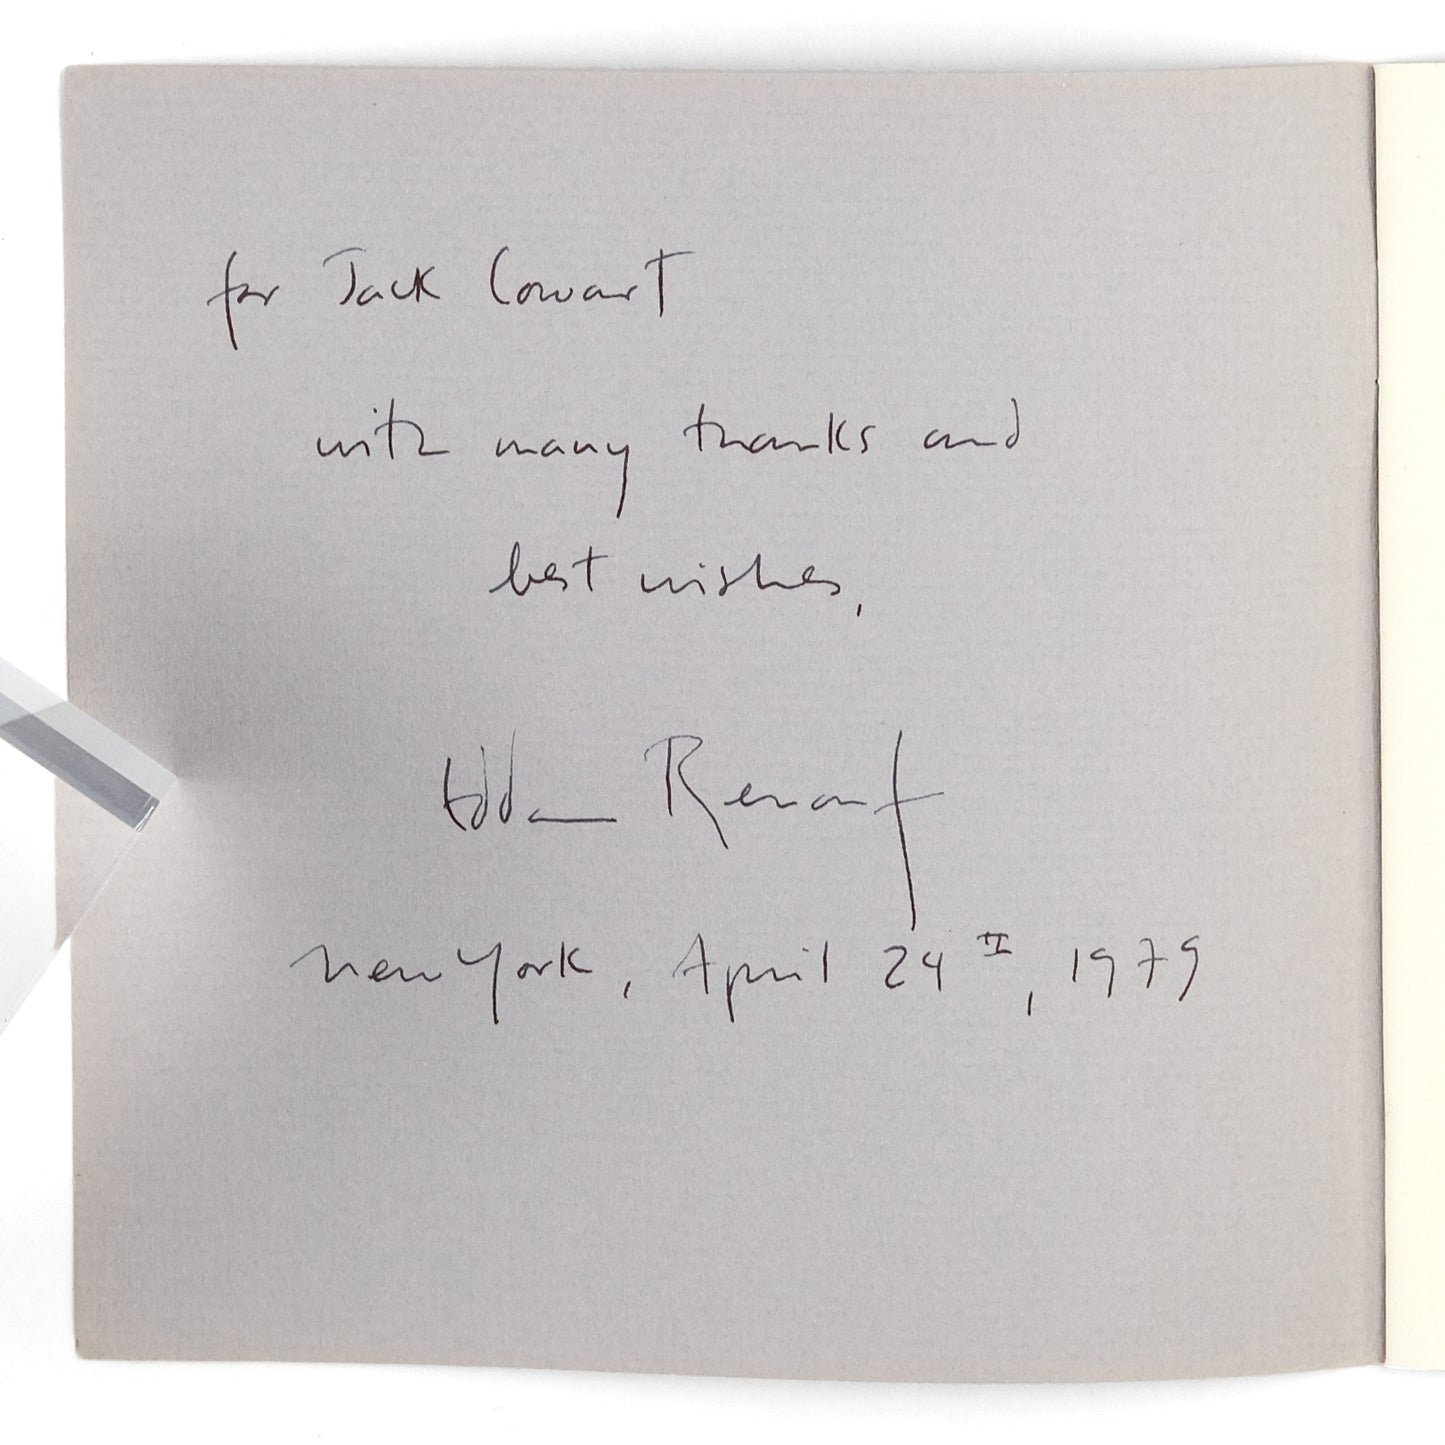 for Jack Cowart
with many thanks and
best wishes,
Edda Renouf
New York, April 24th, 1979